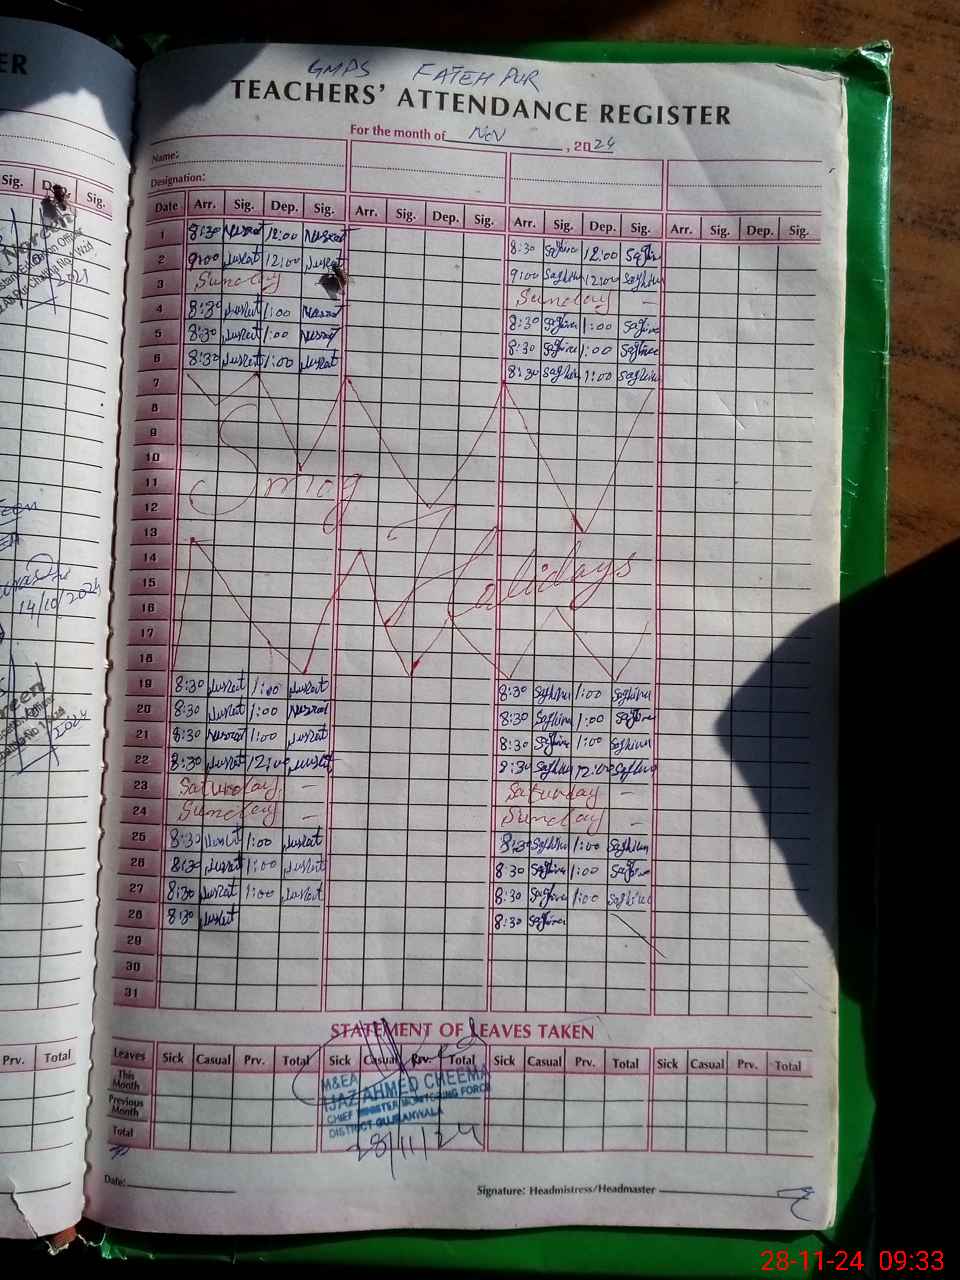 GMPS FATEH PUR
TEACHERS' ATTENDANCE REGISTER
For the month of Nov, 2024
Name:
Designation:
Date Arr. Sig. Dep. Sig. Arr. Sig. Dep. Sig. Arr. Sig. Dep. Sig. Arr. Sig. Dep. Sig.
1 8:30 Nusrat 12:00 Nusrat 8:30 Saghira 12:00 Saghira
2 9:00 Nusrat 12:00 Nusrat 9:00 Saghira 12:00 Saghira
3 Sunday Sunday —
4 8:30 Nusrat 1:00 Nusrat 8:30 Saghira 1:00 Saghira
5 8:30 Nusrat 1:00 Nusrat 8:30 Saghira 1:00 Saghira
6 8:30 Nusrat 1:00 Nusrat 8:30 Saghira 1:00 Saghira
7
8
9
10
11 Smog
12
13
14 Holidays
15
16
17
18
19 8:30 Nusrat 1:00 Nusrat 8:30 Saghira 1:00 Saghira
20 8:30 Nusrat 1:00 Nusrat 8:30 Saghira 1:00 Saghira
21 8:30 Nusrat 1:00 Nusrat 8:30 Saghira 1:00 Saghira
22 8:30 Nusrat 12:00 Nusrat 8:30 Saghira 12:00 Saghira
23 Saturday — Saturday —
24 Sunday — Sunday —
25 8:30 Nusrat 1:00 Nusrat 8:30 Saghira 1:00 Saghira
26 8:30 Nusrat 1:00 Nusrat 8:30 Saghira 1:00 Saghira
27 8:30 Nusrat 1:00 Nusrat 8:30 Saghira 1:00 Saghira
28 8:30 Nusrat 8:30 Saghira
29
30
31
STATEMENT OF LEAVES TAKEN
Leaves Sick Casual Prv. Total Sick Casual Prv. Total Sick Casual Prv. Total Sick Casual Prv. Total
This Month
Previous Month
Total
M&EA
IJAZ AHMED CHEEMA
CHIEF MINISTER MONITORING FORCE
DISTRICT GUJRANWALA
28/11/24
Date:
Signature: Headmistress/Headmaster
ER
Sig. Sig.
2021
14/10/2024
2024
Prv. Total
28-11-24 09:33